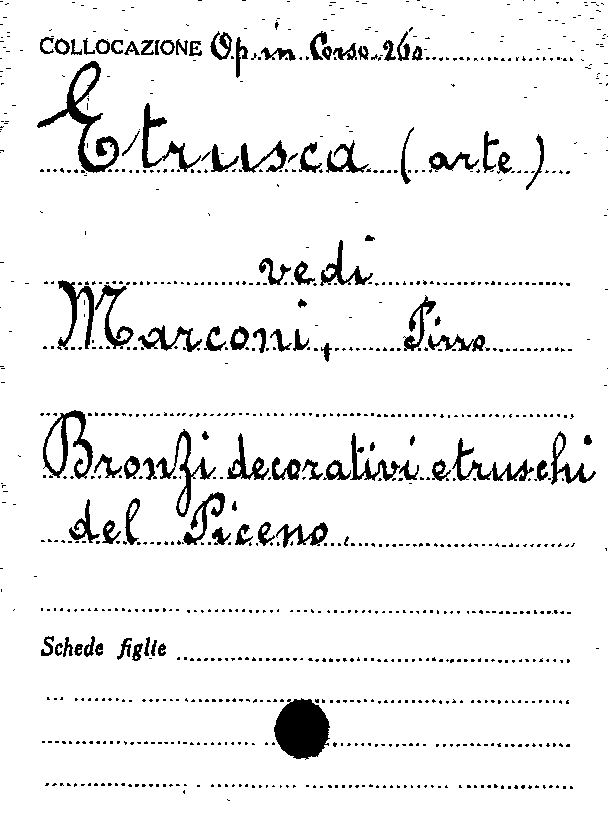 COLLOCAZIONE Op. in Corso 260
Etrusca (arte)
vedi
Marconi, Pirro
Bronzi decorativi etruschi
del Piceno.
Schede figlie